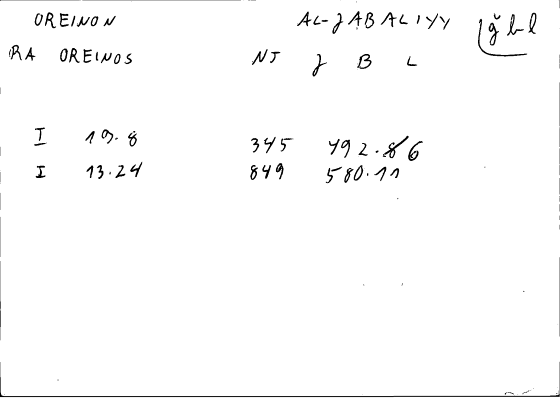 OREINON AL-JABALIYY ǧbl
RA OREINOS NJ J B L
I 19.8 345 492.6
I 13.24 849 580.11